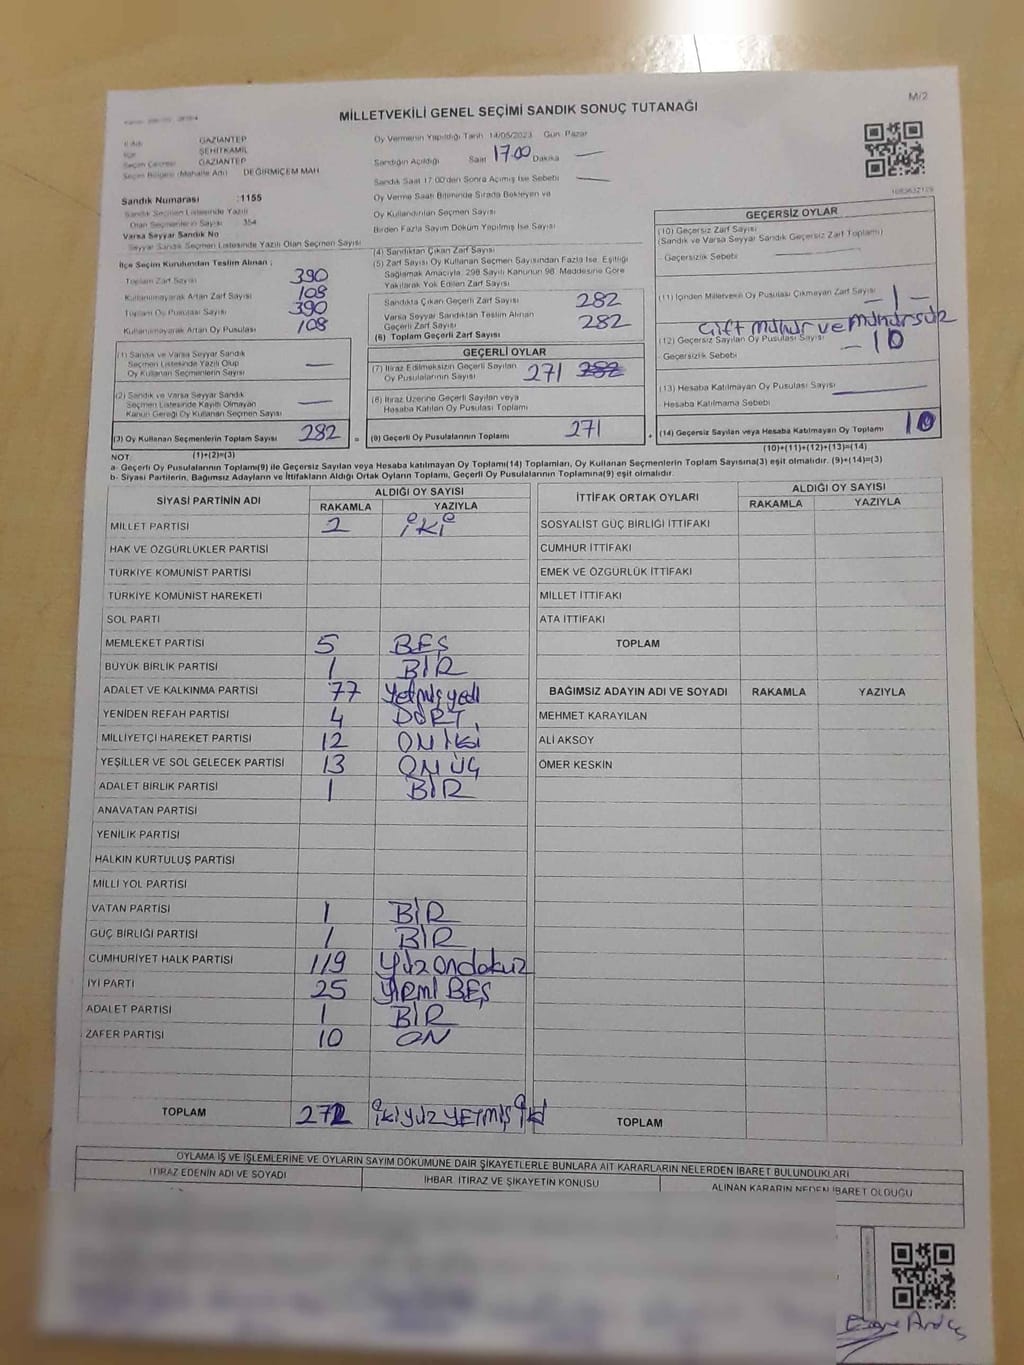 M/2
MİLLETVEKİLİ GENEL SEÇİMİ SANDIK SONUÇ TUTANAĞI
GAZİANTEP
ŞEHİTKAMİL
Seçim Çevresi GAZİANTEP
Seçim Bölgesi (Mahalle Adı) DEĞİRMİÇEM MAH
Sandık Numarası :1155
Sandık Seçmen Listesinde Yazılı
Olan Seçmenlerin Sayısı 354
Varsa Seyyar Sandık No
Seyyar Sandık Seçmen Listesinde Yazılı Olan Seçmen Sayısı
İlçe Seçim Kurulundan Teslim Alınan ;
Toplam Zarf Sayısı 390
Kullanılmayarak Artan Zarf Sayısı 108
Toplam Oy Pusulası Sayısı 390
Kullanılmayarak Artan Oy Pusulası 108
(1) Sandık ve Varsa Seyyar Sandık
Seçmen Listesinde Yazılı Olup
Oy Kullanan Seçmenlerin Sayısı —
(2) Sandık ve Varsa Seyyar Sandık
Seçmen Listesinde Kayıtlı Olmayan
Kanun Gereği Oy Kullanan Seçmen Sayısı —
(3) Oy Kullanan Seçmenlerin Toplam Sayısı 282 =
Oy Vermenin Yapıldığı Tarih 14/05/2023 Gün Pazar
Sandığın Açıldığı Saat 17.00 Dakika —
Sandık Saat 17.00'den Sonra Açılmış İse Sebebi —
Oy Verme Saati Bitiminde Sırada Bekleyen ve
Oy Kullandırılan Seçmen Sayısı
Birden Fazla Sayım Döküm Yapılmış İse Sayısı
(4) Sandıktan Çıkan Zarf Sayısı
(5) Zarf Sayısı Oy Kullanan Seçmen Sayısından Fazla İse, Eşitliği
Sağlamak Amacıyla, 298 Sayılı Kanunun 98. Maddesine Göre
Yakılarak Yok Edilen Zarf Sayısı
Sandıkta Çıkan Geçerli Zarf Sayısı 282
Varsa Seyyar Sandıktan Teslim Alınan
Geçerli Zarf Sayısı 282
(6) Toplam Geçerli Zarf Sayısı
GEÇERLİ OYLAR
(7) İtiraz Edilmeksizin Geçerli Sayılan
Oy Pusulalarının Sayısı 271 282
(8) İtiraz Üzerine Geçerli Sayılan veya
Hesaba Katılan Oy Pusulası Toplamı
(9) Geçerli Oy Pusulalarının Toplamı 271 +
GEÇERSİZ OYLAR
(10) Geçersiz Zarf Sayısı
(Sandık ve Varsa Seyyar Sandık Geçersiz Zarf Toplamı)
Geçersizlik Sebebi
(11) İçinden Milletvekili Oy Pusulası Çıkmayan Zarf Sayısı – 1 –
Çift mühür ve mühürsüz
(12) Geçersiz Sayılan Oy Pusulası Sayısı – 10
Geçersizlik Sebebi
(13) Hesaba Katılmayan Oy Pusulası Sayısı —
Hesaba Katılmama Sebebi
(14) Geçersiz Sayılan veya Hesaba Katılmayan Oy Toplamı 10
NOT (1)+(2)=(3) (10)+(11)+(12)+(13)=(14)
a- Geçerli Oy Pusulalarının Toplamı(9) ile Geçersiz Sayılan veya Hesaba katılmayan Oy Toplamı(14) Toplamları, Oy Kullanan Seçmenlerin Toplam Sayısına(3) eşit olmalıdır. (9)+(14)=(3)
b- Siyasi Partilerin, Bağımsız Adayların ve İttifakların Aldığı Ortak Oyların Toplamı, Geçerli Oy Pusulalarının Toplamına(9) eşit olmalıdır.
SİYASİ PARTİNİN ADI ALDIĞI OY SAYISI
RAKAMLA YAZIYLA
MİLLET PARTİSİ 2 İKİ
HAK VE ÖZGÜRLÜKLER PARTİSİ
TÜRKİYE KOMÜNİST PARTİSİ
TÜRKİYE KOMÜNİST HAREKETİ
SOL PARTİ
MEMLEKET PARTİSİ 5 BEŞ
BÜYÜK BİRLİK PARTİSİ 1 BİR
ADALET VE KALKINMA PARTİSİ 77 yetmiş yedi
YENİDEN REFAH PARTİSİ 4 DÖRT
MİLLİYETÇİ HAREKET PARTİSİ 12 ON İKİ
YEŞİLLER VE SOL GELECEK PARTİSİ 13 ON ÜÇ
ADALET BİRLİK PARTİSİ 1 BİR
ANAVATAN PARTİSİ
YENİLİK PARTİSİ
HALKIN KURTULUŞ PARTİSİ
MİLLİ YOL PARTİSİ
VATAN PARTİSİ 1 BİR
GÜÇ BİRLİĞİ PARTİSİ 1 BİR
CUMHURİYET HALK PARTİSİ 119 Yüz ondokuz
İYİ PARTİ 25 YİRMİ BEŞ
ADALET PARTİSİ 1 BİR
ZAFER PARTİSİ 10 ON
TOPLAM 272 İKİ YÜZ YETMİŞ İKİ
İTTİFAK ORTAK OYLARI ALDIĞI OY SAYISI
RAKAMLA YAZIYLA
SOSYALİST GÜÇ BİRLİĞİ İTTİFAKI
CUMHUR İTTİFAKI
EMEK VE ÖZGÜRLÜK İTTİFAKI
MİLLET İTTİFAKI
ATA İTTİFAKI
TOPLAM
BAĞIMSIZ ADAYIN ADI VE SOYADI RAKAMLA YAZIYLA
MEHMET KARAYILAN
ALİ AKSOY
ÖMER KESKİN
TOPLAM
OYLAMA İŞ VE İŞLEMLERİNE VE OYLARIN SAYIM DÖKÜMÜNE DAİR ŞİKAYETLERLE BUNLARA AİT KARARLARIN NELERDEN İBARET BULUNDUKLARI
İTİRAZ EDENİN ADI VE SOYADI İHBAR, İTİRAZ VE ŞİKAYETİN KONUSU ALINAN KARARIN NEDEN İBARET OLDUĞU